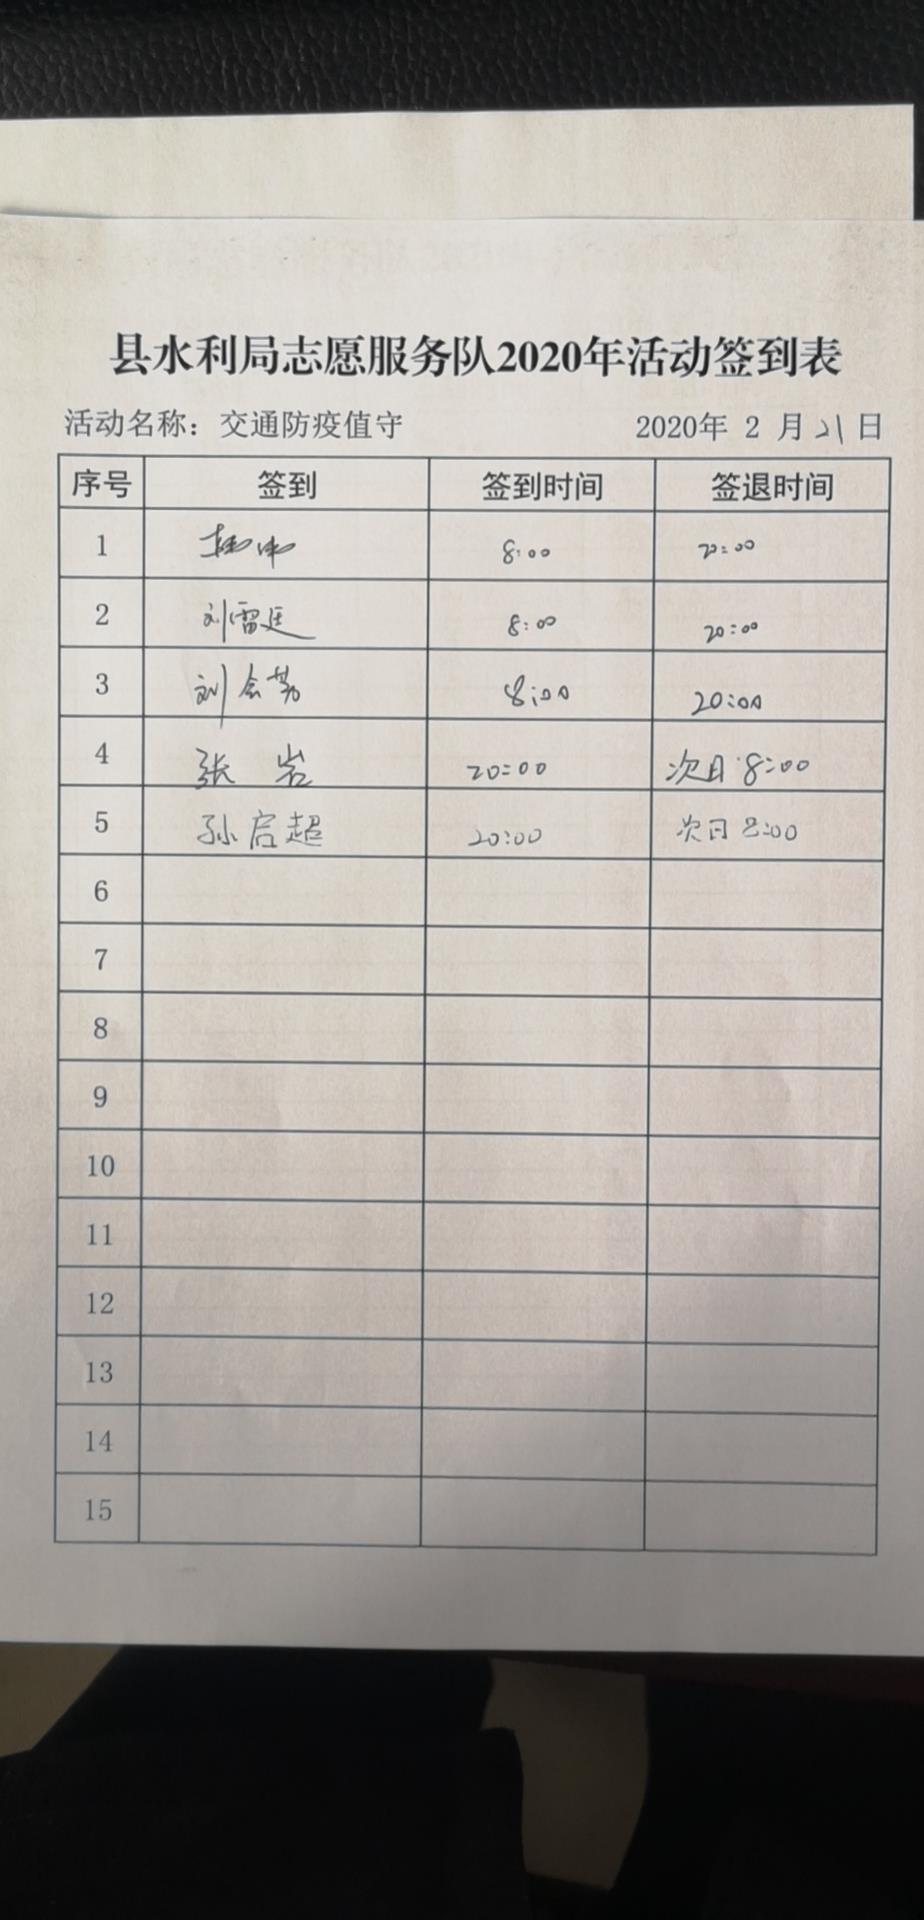 县水利局志愿服务队2020年活动签到表
活动名称：交通防疫值守 2020年 2 月 21 日
序号 签到 签到时间 签退时间
1 8:00 20:00
2 刘雷廷 8:00 20:00
3 刘会芳 8:00 20:00
4 张 岩 20:00 次日 8:00
5 孙启超 20:00 次日 8:00
6
7
8
9
10
11
12
13
14
15